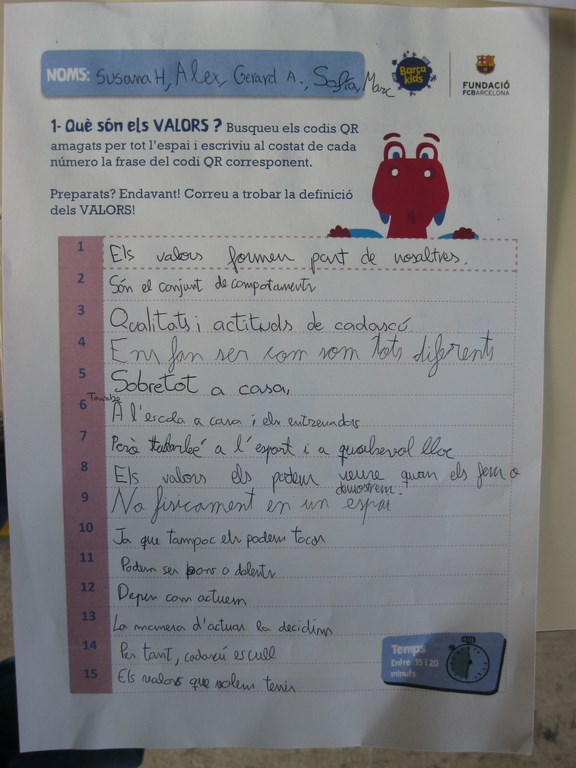 NOMS: Susana H, Alex, Gerard A., Sofia, Marc
Barça kids
FUNDACIÓ
FCBARCELONA
1- Què són els VALORS ? Busqueu els codis QR
amagats per tot l'espai i escriviu al costat de cada
número la frase del codi QR corresponent.
Preparats? Endavant! Correu a trobar la definició
dels VALORS!
1 Els valors formen part de nosaltres.
2 Són el conjunt de comportaments
3 Qualitats i actituds de cadascú
4 Ens fan ser com som tots diferents
5 Sobretot a casa,
6 També A l'escola a casa i els entrenadors
7 Però també a l'esport i a qualsevol lloc
8 Els valors els podem veure quan els fem o
demostrem.
9 No físicament en un espai
10 Ja que tampoc els podem tocar
11 Poden ser bons o dolents
12 Depen com actuem
13 La manera d'actuar la decidim
14 Per tant, cadascú escull
15 Els valors que volem tenir
Temps
Entre 15 i 20
minuts